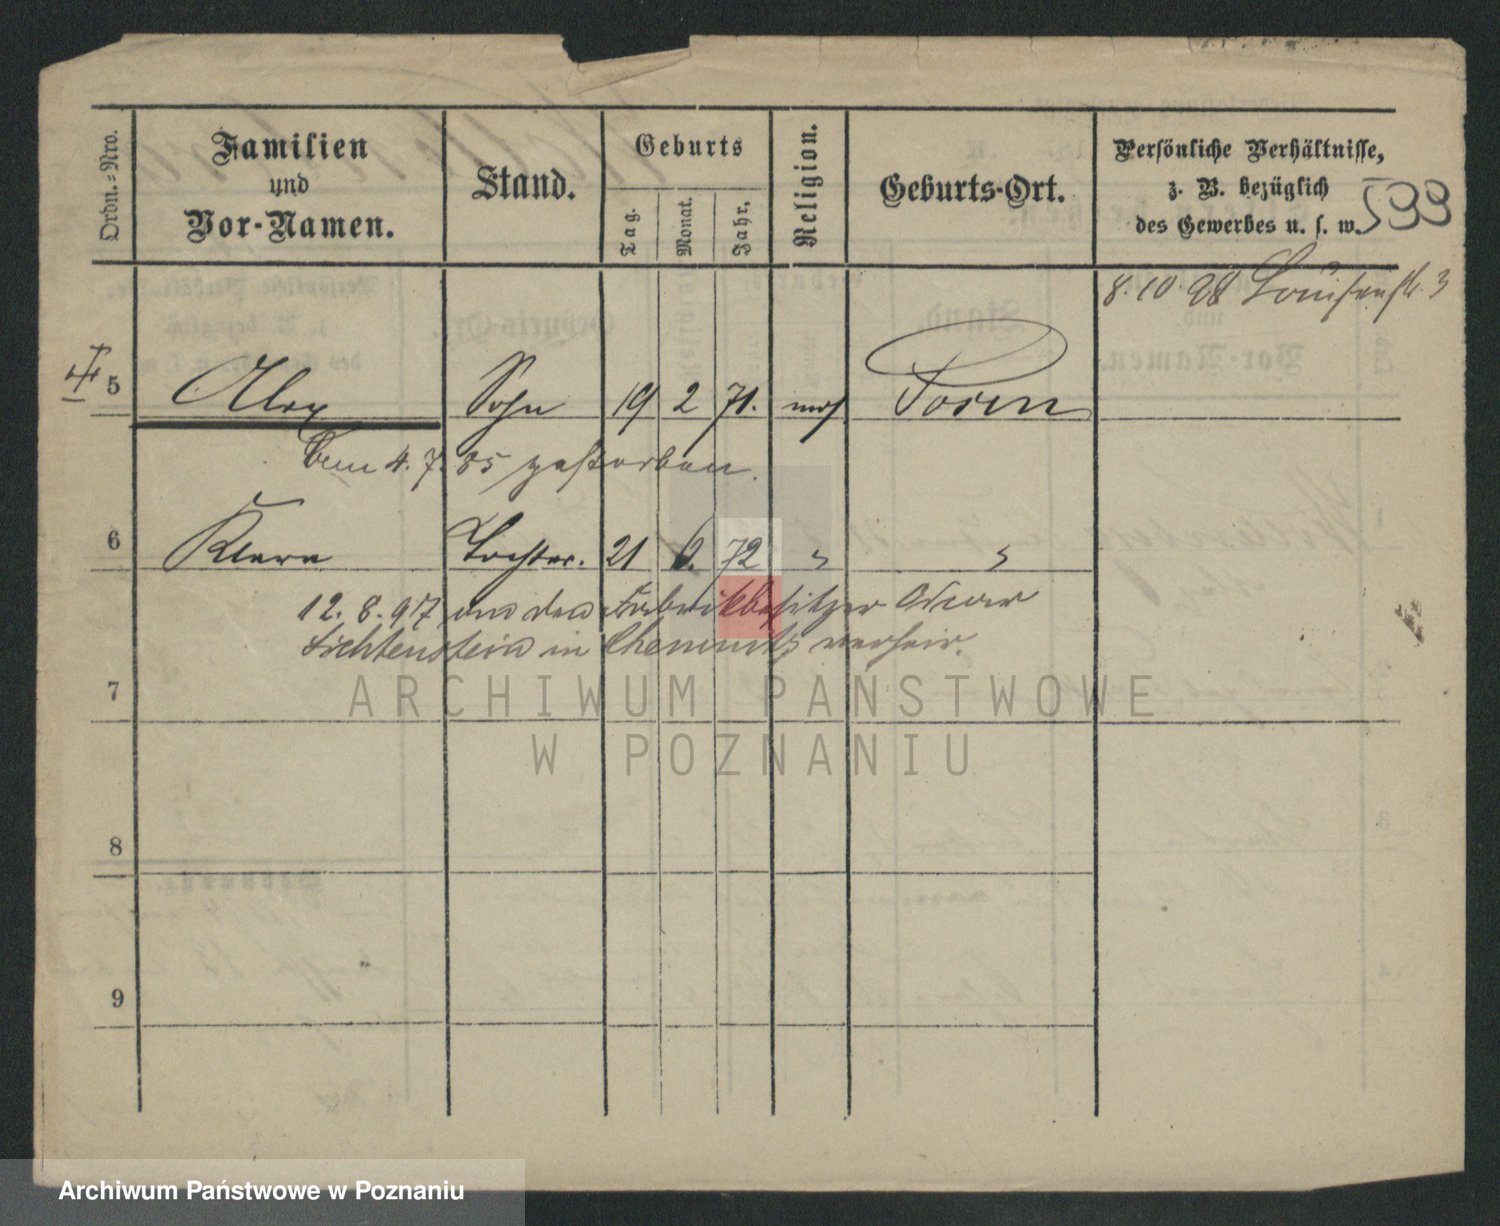 Ordn.-Nro. Familien und Vor-Namen. Stand. Geburts Tag. Monat. Jahr. Religion. Geburts-Ort. Persönliche Verhältnisse, z. B. bezüglich des Gewerbes u. s. w. 599
8. 10. 98 Louisenstr. 3
5 Alex Sohn 19 2 71. mos Posen
Am 4. 7. 85 gestorben.
6 Klara Tochter. 21 6. 72 " "
12. 8. 97 an den Fabrikbesitzer Oscar
Lichtenstein in Chemnitz verheir.
7
ARCHIWUM PAŃSTWOWE
W POZNANIU
8
9
Archiwum Państwowe w Poznaniu